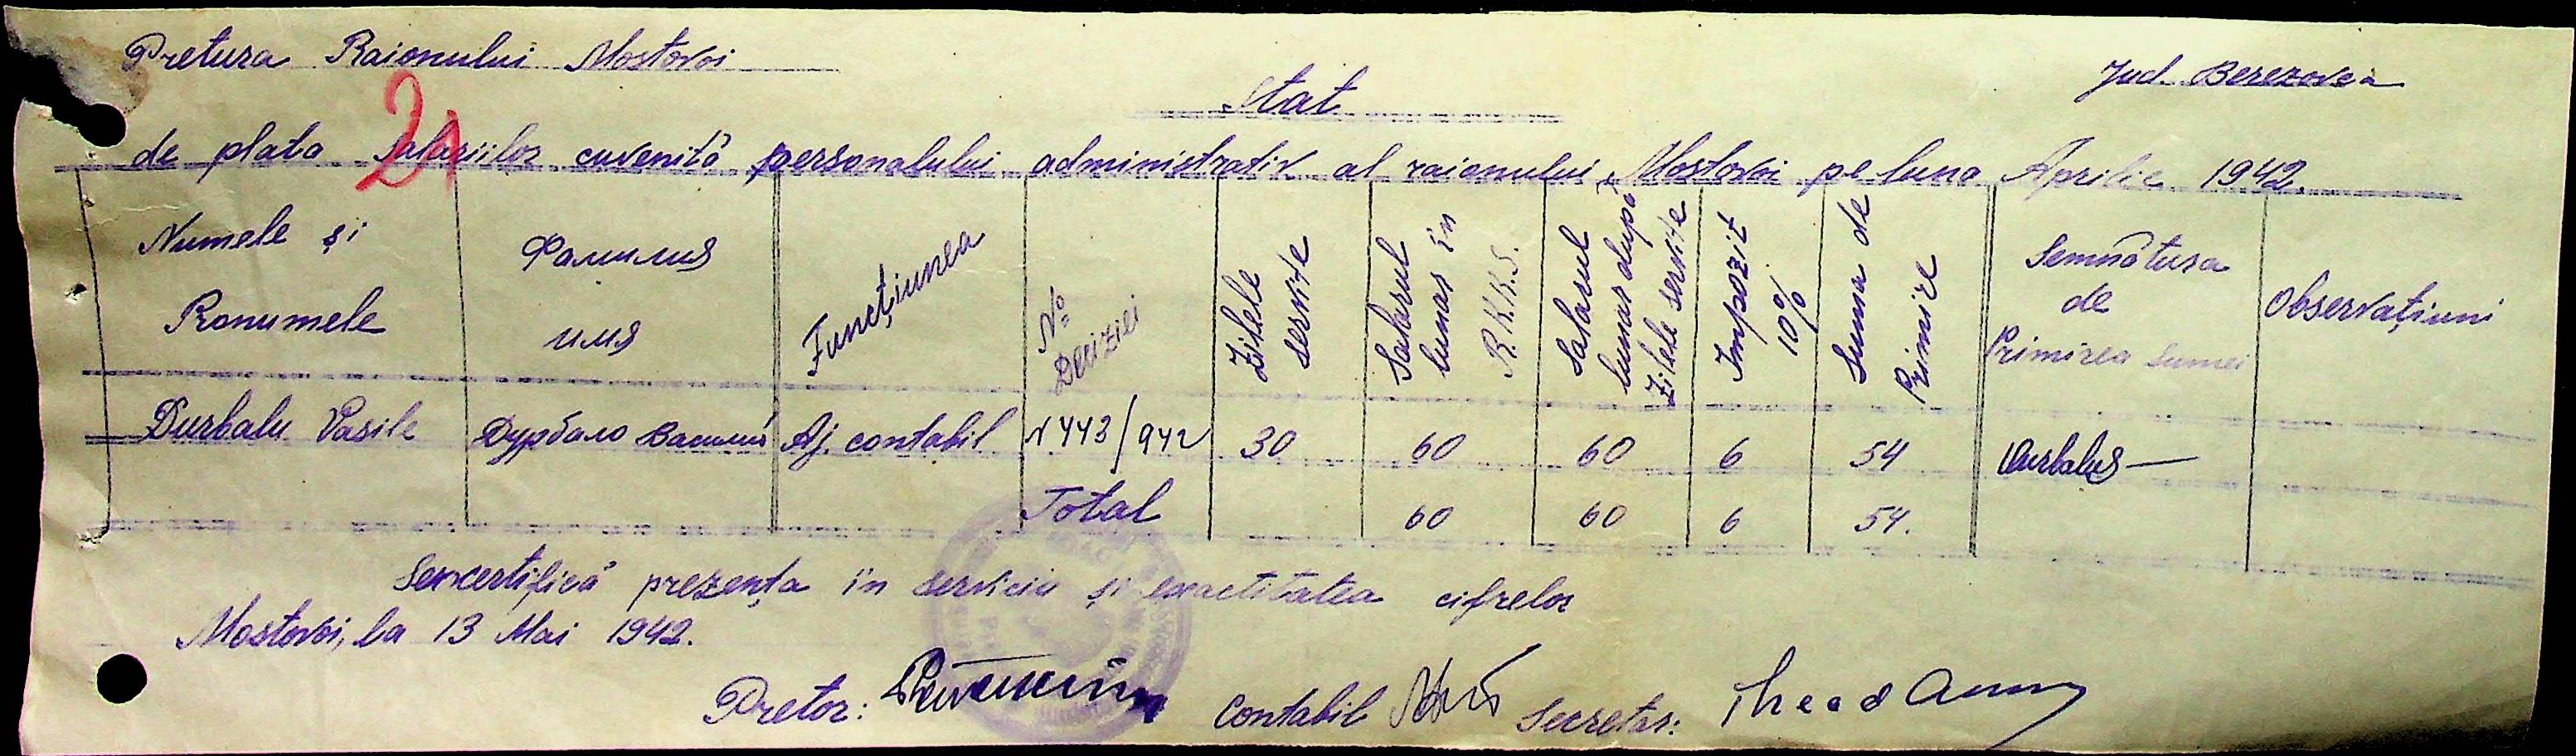 Pretura Raionului Mostovoi
Jud. Berezovca
Stat
21
de plata salariilor cuvenită personalului administrativ al raionului Mostovoi pe luna Aprilie 1942.
Numele și Pronumele
Фамилия имя
Funcțiunea
No Deciziei
Zilele servite
Salarul lunar în R.K.K.S.
Salarul lunar după Zilele servite
Impozit 10%
Suma de Primire
Semnătura de Primirea sumei
Observațiuni
Durbalu Vasile Дурбало Василий Aj. contabil N 443/942 30 60 60 6 54 Durbalus
Total 60 60 6 54.
Se certifică prezența în serviciu și exactitatea cifrelor
Mostovoi, la 13 Mai 1942.
Pretor: Contabil Secretar: